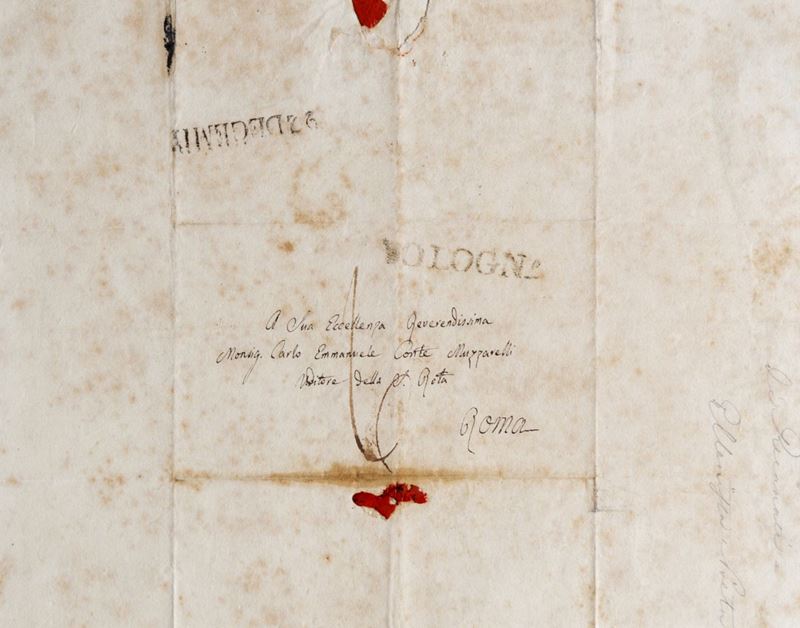 22 DECEMB
BOLOGNA
A Sua Eccellenza Reverendissima
Monsig. Carlo Emmanuele Conte Muzzarelli
Uditore della S. Rota
Roma